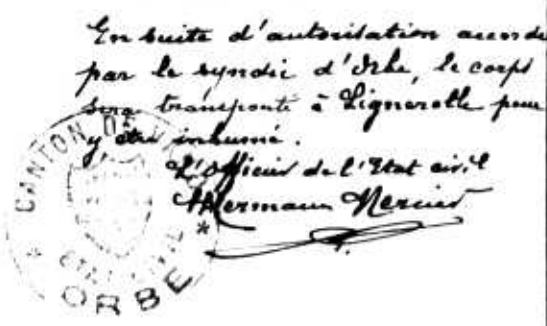 En suite d'autorisation accordé
par le syndic d'Orbe, le corps
sera transporté à Lignerolle pour
y être inhumé.
L'officier de l'Etat civil
Hermann Mercier
CANTON DE
ETAT CIVIL
ORBE